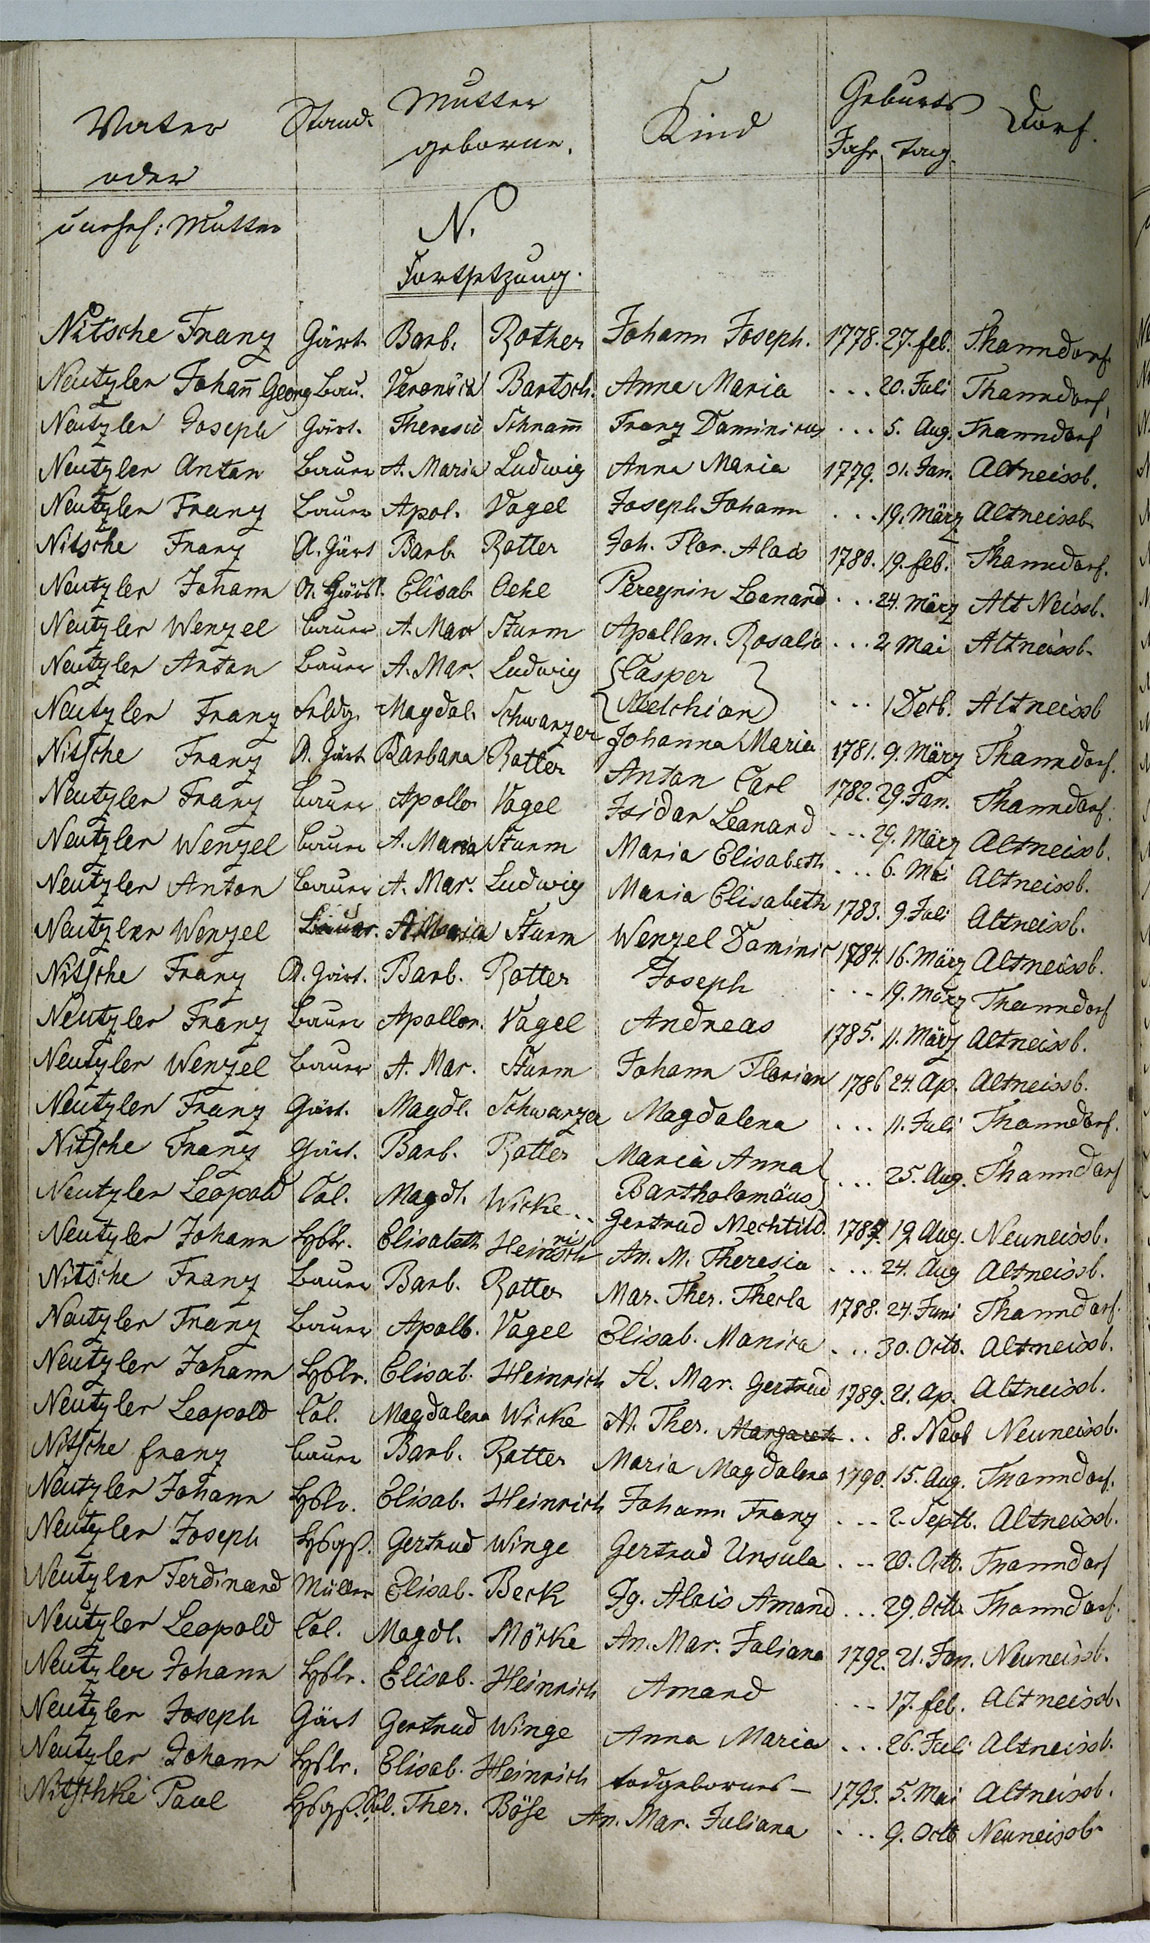 Vater Stand. Mutter Kind Geburts Dorf.
oder geborne. Jahr, tag.
unehel: Mutter
N.
Fortsetzung.
Nitsche Franz Gärt. Barb. Rother Johann Joseph. 1778. 27. feb. Thanndorf
Neutzler Johann Georg Bau. Veronica Bartsch. Anna Maria ... 20. Juli Thanndorf,
Neutzler Joseph Gärt. Theresia Schramm Franz Dominicus ... 5. Aug. Thanndorf
Neutzler Anton Bauer A. Maria Ludwig Anna Maria 1779. 31. Jan. Altneissb.
Neutzler Franz Bauer Apol. Vogel Joseph Johann ... 19. März Altneissb.
Nitsche Franz A. Gärt Barb. Rotter Joh. Flor. Alois 1780. 19. feb. Thanndorf.
Neutzler Johann Elisab. Oehl Peregrin Leonard ... 24. März Alt Neissb.
Neutzler Wenzel Bauer A. Mar Sturm Apollon. Rosalia ... 2 Mai Altneissb.
Neutzler Anton Bauer A. Mar. Ludwig {Casper
Melchior} ... 1 Octb. Altneissb
Neutzler Franz Feldg. Magdal. Schwarzer Johanna Maria 1781. 9. März Thanndorf.
Nitsche Franz A. Gärt Barbara Rotter Anton Carl 1782. 29. Jan. Thanndorf.
Neutzler Franz Bauer Apollo Vogel Isidor Leonard ... 29. März Altneissb.
Neutzler Wenzel Bauer A. Maria Sturm Maria Elisabeth ... 6. Mai Altneissb.
Neutzler Anton Bauer A. Mar. Ludwig Maria Elisabeth 1783. 9. Juli Altneissb.
Neutzler Wenzel Bauer. A. Maria Sturm Wenzel Dominic 1784. 16. März Altneissb.
Nitsche Franz A. Gärt. Barb. Rotter Joseph ... 19. März Thanndorf
Neutzler Franz Bauer Apollon. Vogel Andreas 1785. 11. März Altneissb.
Neutzler Wenzel Bauer A. Mar. Sturm Johann Florian 1786 24. Ap. Altneissb.
Neutzler Franz Gärt. Magdl. Schwarzer Magdalena ... 11. Juli Thanndorf.
Nitsche Franz Gärt. Barb. Rotter Maria Anna
Bartholomäus} ... 25. Aug. Thanndorf
Neutzler Leopold Col. Magdl. Wicke.. Gertrud Mechtild. 1787. 19. Aug. Neuneissb.
Neutzler Johann Hslr. Elisabeth Heinrich An. M. Theresia ... 24. Aug Altneissb.
Nitsche Franz Bauer Barb. Rotter Mar. Ther. Thecla 1788. 24. Juni Thanndorf.
Neutzler Franz Bauer Apollo. Vogel Elisab. Monica ... 30. Octb. Altneissb.
Neutzler Johann Hslr. Elisab. Heinrich A. Mar. Gertrud 1789. 21. Ap. Altneissb.
Neutzler Leopold Col. Magdalena Wicke M. Ther. Margareth ... 8. Novb Neuneissb.
Nitsche franz Bauer Barb. Rotter Maria Magdalena 1790. 15. Aug. Thanndorf.
Neutzler Johann Hslr. Elisab. Heinrich Johann Franz ... 2. Septb. Altneissb.
Neutzler Joseph Gertrud Winge Gertrud Ursula ... 20. Octb. Thanndorf
Neutzler Ferdinand Müller Elisab. Beck Ig. Alois Amand ... 29. Octb. Thanndorf.
Neutzler Leopold Col. Magdl. Mörke An. Mar. Juliana 1792. 21. Jan. Neuneissb.
Neutzler Johann Hslr. Elisab. Heinrich Amand ... 17. feb. Altneissb.
Neutzler Joseph Gärt Gertrud Winge Anna Maria ... 26. Juli Altneissb.
Neutzler Johann Hslr. Elisab. Heinrich todgebornes — 1793. 5. Mai Altneissb.
Nitschke Paul Ther. Böse An. Mar. Juliana ... 9. Octb Neuneissb.